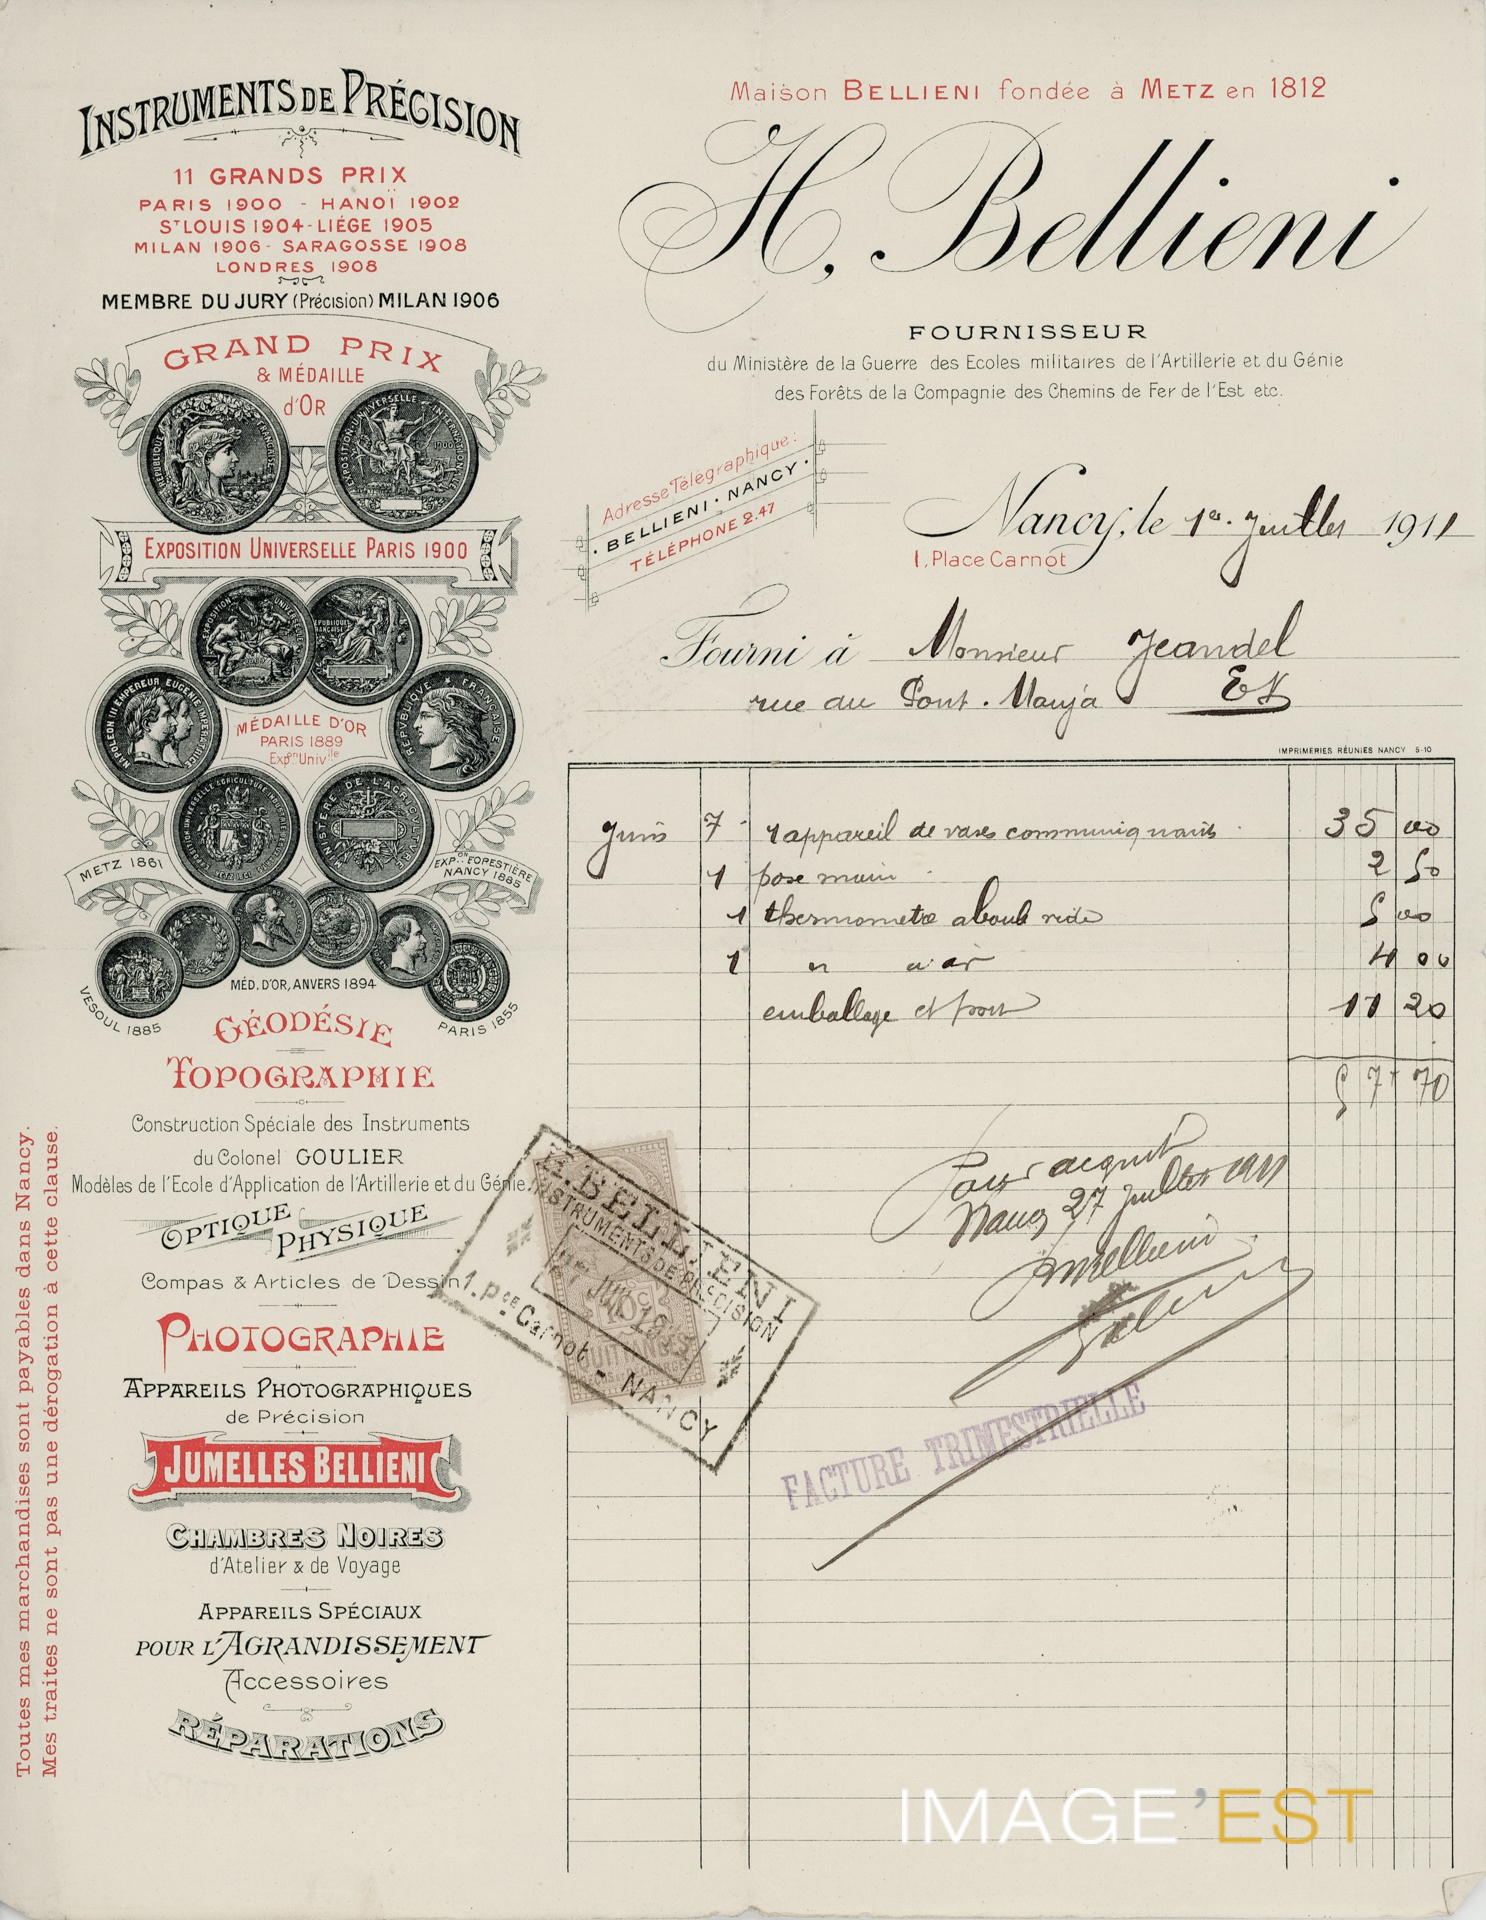 INSTRUMENTS DE PRÉCISION
11 GRANDS PRIX
PARIS 1900 - HANOÏ 1902
ST LOUIS 1904 - LIÉGE 1905
MILAN 1906 - SARAGOSSE 1908
LONDRES 1908
MEMBRE DU JURY (Précision) MILAN 1906
GRAND PRIX
& MÉDAILLE
d'OR
EXPOSITION UNIVERSELLE PARIS 1900
NAPOLEON III EMPEREUR EUGENIE IMPERATRICE
REPUBLIQUE FRANÇAISE
MÉDAILLE D'OR
PARIS 1889
Expon Univlle
METZ 1861
EXPON FORESTIÈRE
NANCY 1885
MÉD. D'OR, ANVERS 1894
VESOUL 1885
PARIS 1855
GÉODÉSIE
TOPOGRAPHIE
Construction Spéciale des Instruments
du Colonel GOULIER
Modèles de l'Ecole d'Application de l'Artillerie et du Génie.
OPTIQUE
PHYSIQUE
Compas & Articles de Dessin
PHOTOGRAPHIE
APPAREILS PHOTOGRAPHIQUES
de Précision
JUMELLES BELLIENI
CHAMBRES NOIRES
d'Atelier & de Voyage
APPAREILS SPÉCIAUX
POUR L'AGRANDISSEMENT
Accessoires
RÉPARATIONS
Toutes mes marchandises sont payables dans Nancy.
Mes traites ne sont pas une dérogation à cette clause.
Maison BELLIENI fondée à METZ en 1812
H. Bellieni
FOURNISSEUR
du Ministère de la Guerre des Ecoles militaires de l'Artillerie et du Génie
des Forêts de la Compagnie des Chemins de Fer de l'Est etc.
Adresse Télégraphique:
BELLIENI · NANCY
TÉLÉPHONE 2.47
Nancy, le 1er Juillet 1911
1, Place Carnot
Fourni à Monsieur Jeandel
rue du Pont-Mouja
IMPRIMERIES RÉUNIES NANCY 5-10
Juin 7 1 appareil de vases communiquants 35 00
1 pose main 2 50
1 thermomètre 5 00
1 " 4 00
emballage et port 11 20
57 70
Pour acquit
Nancy 27 Juillet 1911
Bellieni
H. BELLIENI
INSTRUMENTS DE PRÉCISION
1. Pce Carnot - NANCY
FACTURE TRIMESTRIELLE
IMAGE'EST